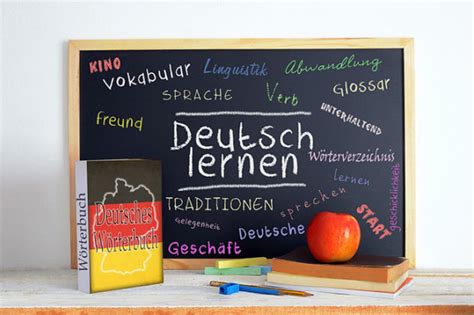 KINO
Vokabular
Linguistik
Abwandlung
SPRACHE
Verb
Glossar
UNTERHALTEND
Freund
Deutsch
lernen
Wörterverzeichnis
lernen
geschicklichkeit
TRADITIONEN
sprechen
START
Gelegenheit
Deutsche
Geschäft
Wörterbuch
Deutsches
Wörterbuch